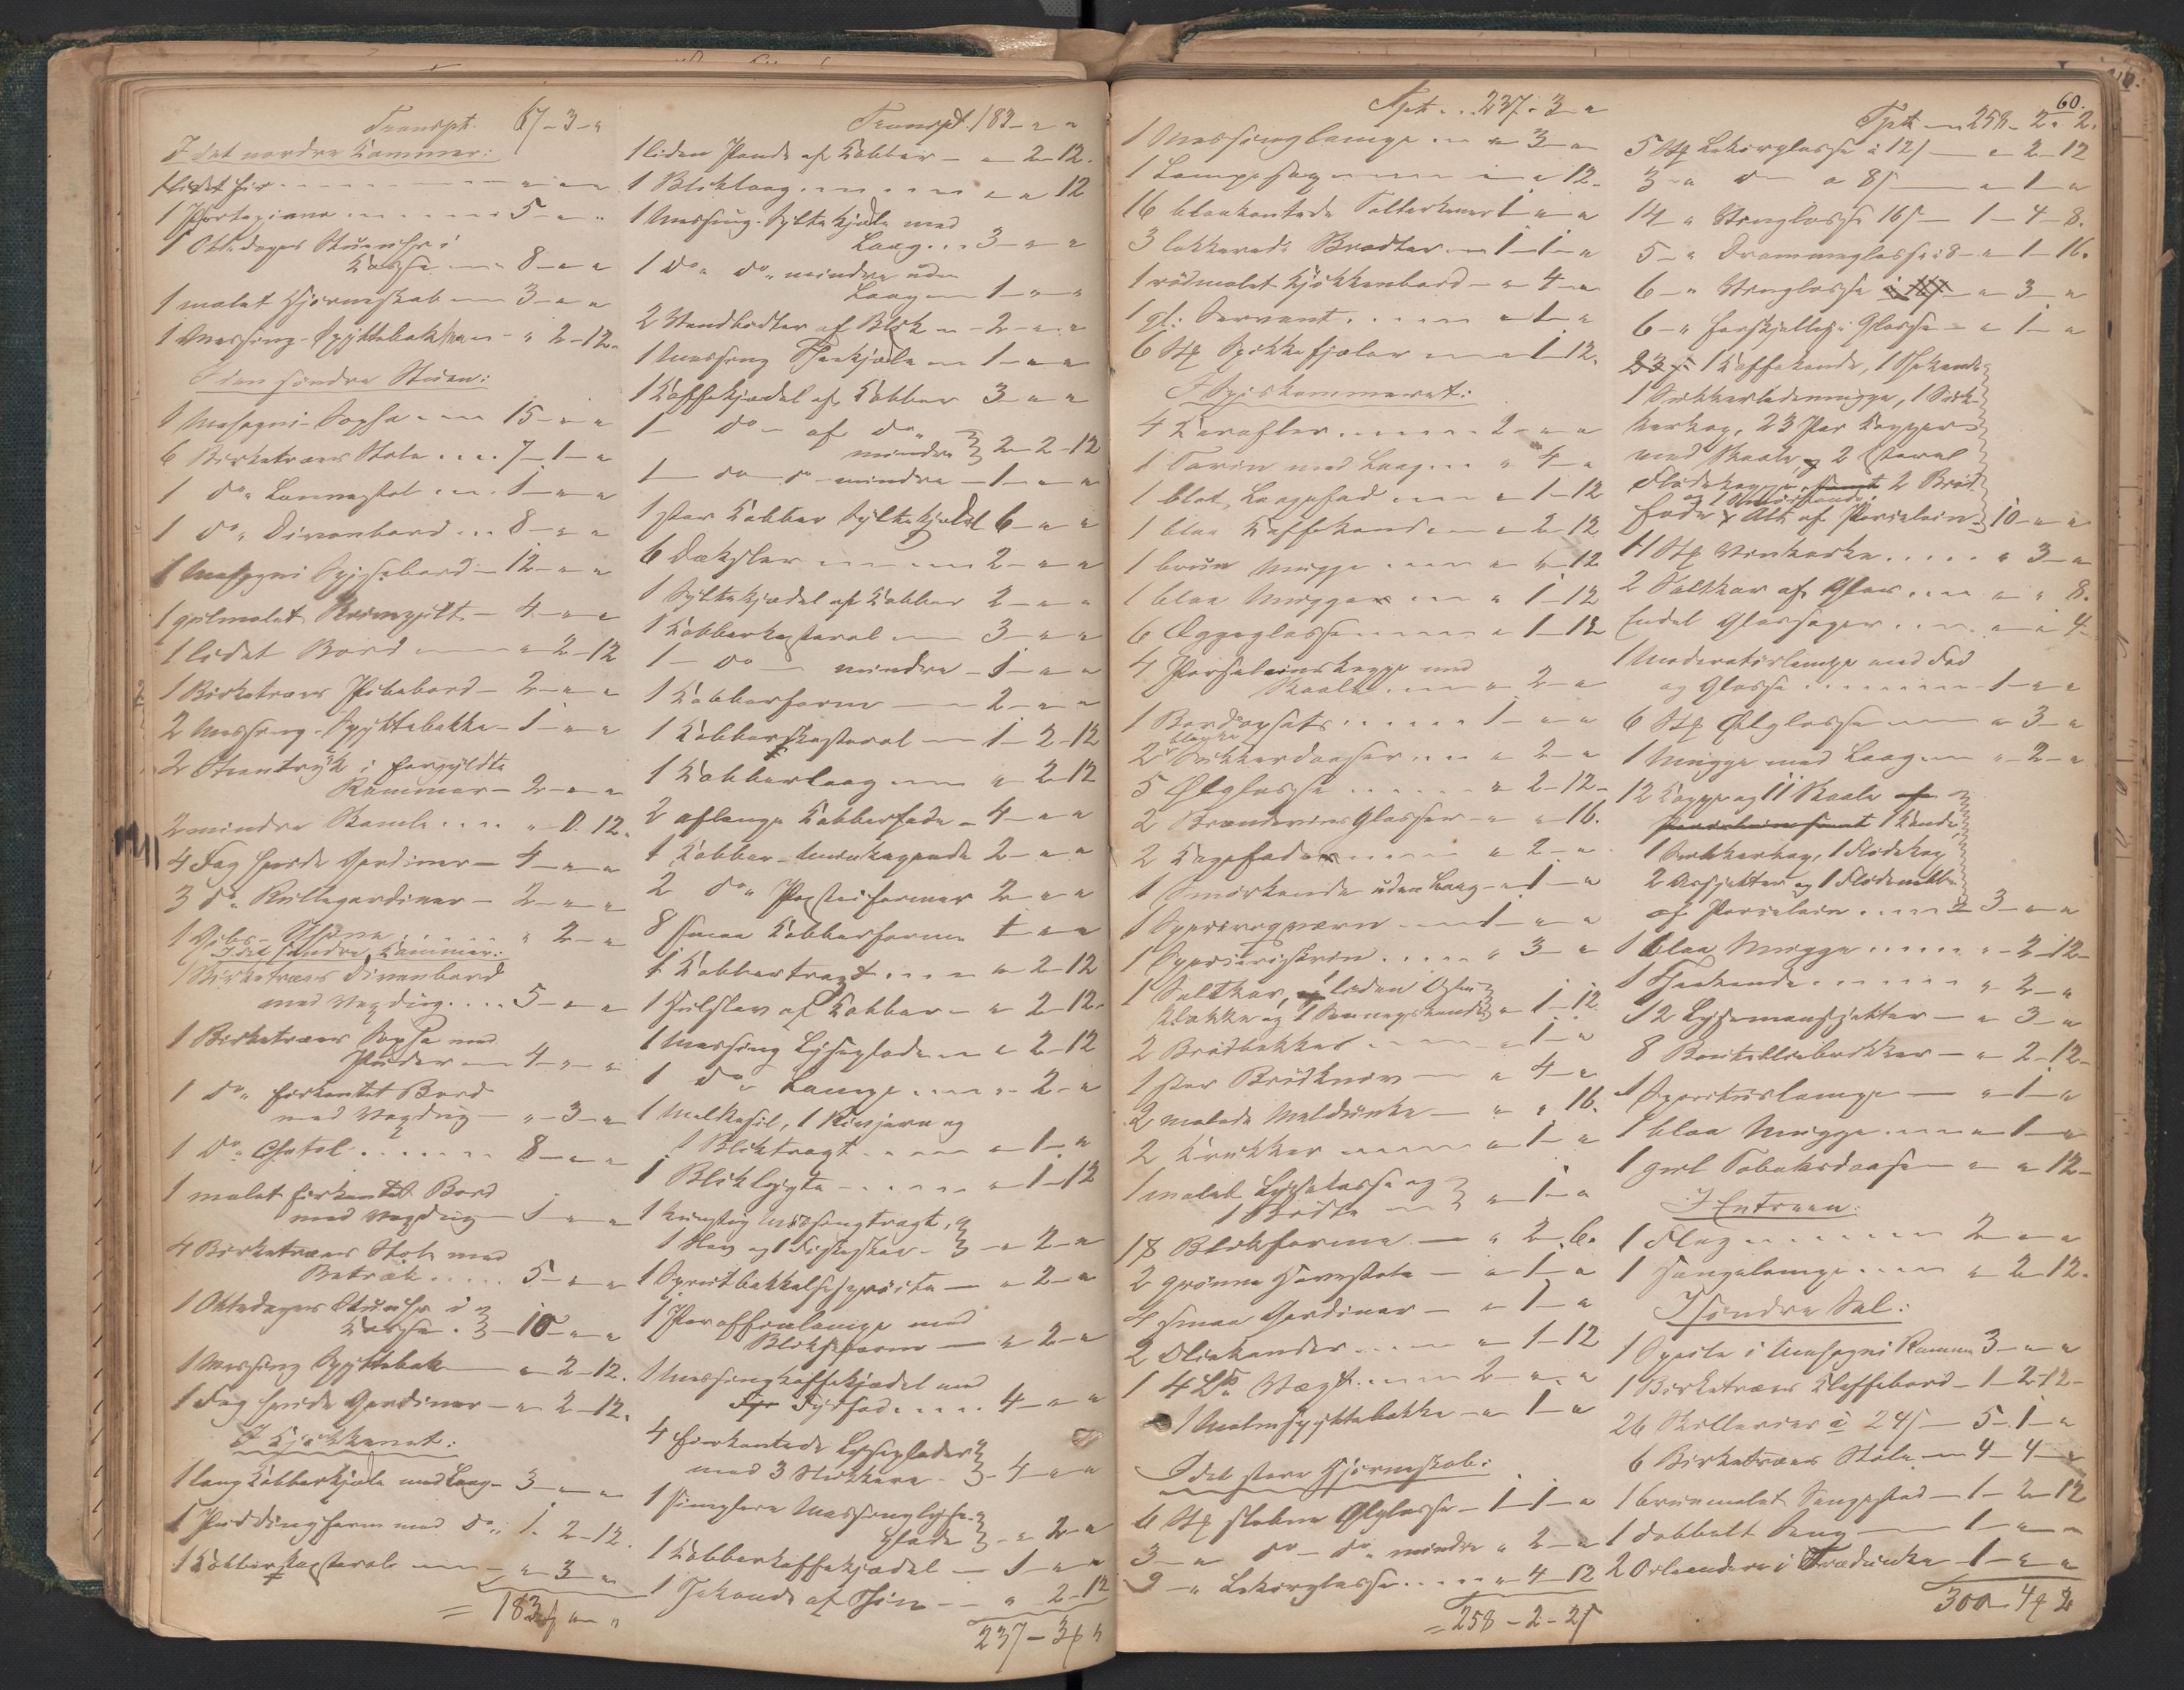 Transpt. 67-3-"
I det nordre Kammer:
1 Fortepiano 5-"-"
1 Otte dages Stueuhr i
Kasse 8-"-"
1 malet Hjørneskab 3-"-"
1 Messing-Spyttebakke "-2-12.
I den søndre Stuen:
1 Mahogni-Sopha 15-"-"
6 Birketræes Stole 7-1-"
1 do Lænnestol 1-"-"
1 do Divanbord 8-"-"
1 Mahogni Spisebord 12-"-"
1 guulmalet 4-"-"
1 lidet Bord "-2-12
1 Birketræes Pibebord 2-"-"
2 Messing-Spyttebakke 1-"-"
2 Steentryk i forgyldte
Rammer 2-"-"
2 mindre Gamle "-0.12.
4 Fag hvide Gardiner 4-"-"
3 do Rullegardiner 2-"-"
"-2-"
I det søndre Kammer:
1 Birketræes Divanbord
med Voxdug 5-"-"
1 Birketræes Sopha med
Puder 4-"-"
1 do firkantet Bord
med Voxdug "-3-"
1 do Chatol 8-"-"
1 malet firkantet Bord
med Voxdug 1-"-"
4 Birketræes Stole med
Betræk 5-"-"
1 Ottedages Stueuhr i
Kasse 10-"-"
1 Messing Spyttebak "-2-12.
1 Fag hvide Gardiner "-2-12.
I Kjøkkenet:
1 lang Kobberkjedel med Laag 3-"-"
1 Puddingform med do 1-2-12.
1 Kobberkasserol "-3-"
= 183 "-"
Transpt. 183-"-"
1 liden Pande af Kobber "-2-12.
1 Bliklaag "-"-12
1 Messing-Syltekjedel med
Laag 3-"-"
1 do do mindre uden
Laag 1-"-"
2 Vandbøtter af Blik 2-"-"
1 Messing Theekjedel 1-"-"
1 Kaffekjedel af Kobber 3-"-"
1 do af do
mindre 2-2-12
1 do do mindre 1-"-"
1 stor Kobber Syltekjedel 6-"-"
6 Dæksler 2-"-"
1 Syltekjedel af Kobber 2-"-"
1 Kobberkasserol 3-"-"
1 do mindre 1-"-"
1 Kobberform 2-"-"
1 Kobberkasserol 1-2-12
1 Kobberlaag "-2-12
2 aflange Kobberfade 4-"-"
1 Kobber-Pandekagepande 2-"-"
2 do Posteiformer 2-"-"
8 smaa Kobberforme 1-"-"
1 Kobbertragt "-2-12
1 Hulslev af Kobber "-2-12.
1 Messing Lyseplade "-2-12
1 do Lampe "-2-"
1 Melkesil, 1 Rivjern og
1 Bliktragt "-1-"
1 Bliklygte "-1-12
1 Messingtragt,
1 Slev og 1 Fiskeslev "-2-"
1 Sprutbakkelsesprøite "-2-"
1 Paraffinlampe med
Blikskjærm "-2-"
1 Messingkaffekjedel med
Fyrfad 4-"-"
4 firkantede Lyseplader
med 3 Stikkere 4-"-"
1 simplere Messinglyse-
plade "-2-"
1 Kobberkaffekjedel 1-"-"
1 Thekande af Thin "-2-12
237-3-"
Tpt. 237-3-"
1 Messinglampe "-3-"
1 Lampesax "-"-12.
16 blaakantede Tallerkener 1-"-"
3 lakkerede Brødter 1-1-"
1 rødmalet Kjøkkenbord "-4-"
1 gl. Servant "-1-"
6 Stk Spikkefjæler "-1-12.
I Spiskammeret:
4 Karafler 2-"-"
1 Terin med Laag "-4-"
1 blot, Laagefad "-1-12
1 blaa Kaffekande "-2-12
1 bruun Mugge "-"-12
1 blaa Mugge "-1-12
6 Æggeglasse "-1-12
4 Porselænskopper med
Skaaler "-2-"
1 Bordopsats 1-"-"
2 blanke Sukkerdaaser "-2-"
5 Ølglasse "-2-12-
2 Brændeviinsglasser "-"-16.
2 Kagefade "-2-"
1 Smørkande uden Laag "-1-"
1 Speceriqværn 1-"-"
1 Speceriskrin "-3-"
1 Saltkar, 1 liden Oste-
klokke og 1 Sennepskande "-1-12
2 Brødbakker "-1-"
1 stor Brødkniv "-4-"
2 malede Meldunke "-"-16.
2 Krukker "-1-"
1 malet Lysekasse og
1 Bøtte "-1-"
18 Blikforme "-2-6.
2 grønne Havestole "-1-"
4 smaa Gardiner "-1-"
2 Oliekander "-1-12
1 4 Vægt 2-"-"
1 Malmspyttebakke "-1-"
I det store Hjørneskab:
6 Stk slebne Ølglasse 1-1-"
3 " do do mindre "-2-"
9 " Likørglasse "-4-12
= 258-2-2
60.
Tpt 258-2-2.
5 Stk Likørglasse à 12 "-2-12
3 " do à 8 "-1-"
14 " Viinglasse 16 1-4-8.
5 " Drammeglasse à 8 "-1-16.
6 " Viinglasse "-3-"
6 " forskjellige Glasse "-1-"
1 Kaffekande, 1 Thekande
1 Sukkerladenmugge, 1 Suk-
kerkop, 23 Par Kopper
med Skaaler, 2 større
Flødekopper, samt 2 Brød-
fade, Alt af Porcelain 10-"-"
11 Stk Viinkarke "-3-"
2 Saltkar af Glas "-"-8.
Endel Glassager "-"-4
1 Moderatørlampe med Fod
og Glasse 1-"-"
6 Stk Ølglasse "-3-"
1 Mugge med Laag "-2-"
12 Kopper og 11 Skaale
Porcelain samt 1 Kande,
1 Sukkerkop, 1 Flødekop
2 Assietter og 1 Flødemukke
af Porcelain 3-"-"
1 blaa Mugge "-2-12-
1 Theekande "-2-"
12 Lysemanschetter "-3-"
8 Bouteillebrikker "-2-12-
1 Spirituslampe "-1-"
1 blaa Mugge "-1-"
1 guul Tobaksdaase "-"-12-
I Entreen:
1 Flag 2-"-"
1 Hængelampe "-2-12.
I søndre Sal:
1 Speile i Mahogni Ramme 3-"-"
1 Birketræes Klaffebord 1-2-12-
26 Skillerier à 24 5-1-"
6 Birketræes Stole 4-4-"
1 bruunmalet Sengested 1-2-12
1 dobbelt Seng 1-"-"
2 Oleandere i Trædunke 1-"-"
300-4-2